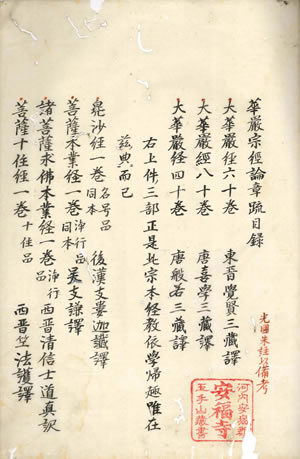 華嚴宗經論章疏目录
大華嚴經六十巻　東晋覺賢三藏譯
大華嚴經八十巻　唐喜學三藏譯
大華嚴経四十巻　唐般若三藏譯
右上件三部正是此宗本経教依學歸趣唯在
茲典而已
兠沙経一巻　名号品同本　後漢支婁迦讖譯
菩薩本業経一巻　淨行品同本　吳支謙譯
諸菩薩求佛本業経一巻　淨行品　西晋清信士道真訳
菩薩十住経一巻　十住品　西晋竺法護譯
河内安福寺
安福寺
玉手山蔵書